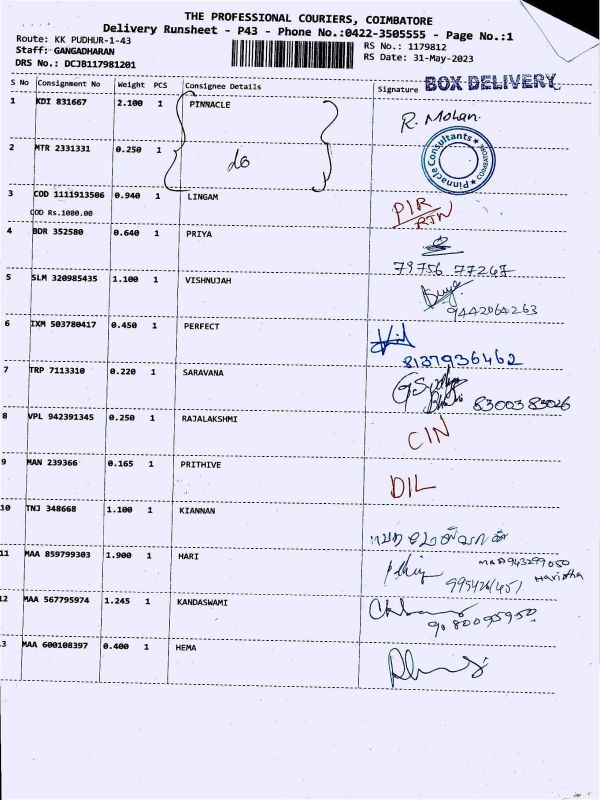 THE PROFESSIONAL COURIERS, COIMBATORE
Delivery Runsheet - P43 - Phone No.:0422-3505555 - Page No.:1
Route: KK PUDHUR-1-43
Staff: GANGADHARAN
DRS No.: DCJB117981201
RS No.: 1179812
RS Date: 31-May-2023
S No Consignment No Weight PCS Consignee Details Signature BOX DELIVERY
1 KDI 831667 2.100 1 PINNACLE R. Mohan.
Pinnacle Consultants * COIMBATORE *
2 MTR 2331331 0.250 1 do
3 COD 1111913506 0.940 1 LINGAM PIR
COD Rs.1000.00 RTN
4 BDR 352580 0.640 1 PRIYA
79756 77267
5 SLM 320985435 1.100 1 VISHNUJAH
9442064263
6 IXM 503780417 0.450 1 PERFECT
8137936462
7 TRP 7113310 0.220 1 SARAVANA
8300385026
8 VPL 942391345 0.250 1 RAJALAKSHMI CIN
9 MAN 239366 0.165 1 PRITHIVE DIL
10 TNJ 348668 1.100 1 KIANNAN
11 MAA 859799303 1.900 1 HARI
Haristha
12 MAA 567795974 1.245 1 KANDASWAMI
9080095950
3 MAA 600108397 0.400 1 HEMA